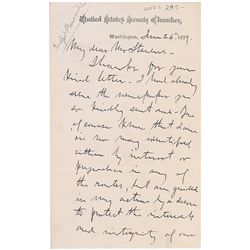 United States Senate Chamber,
Washington, June 26, 1879.
My dear Mr
Thanks for your
kind letter. I had already
seen the newspaper you
so kindly sent me. You
of course know that I am
in no way identified
either by interest or
prejudice in any of
the routes, but am guided
in my action by a desire
to protect the interests
and integrity of our